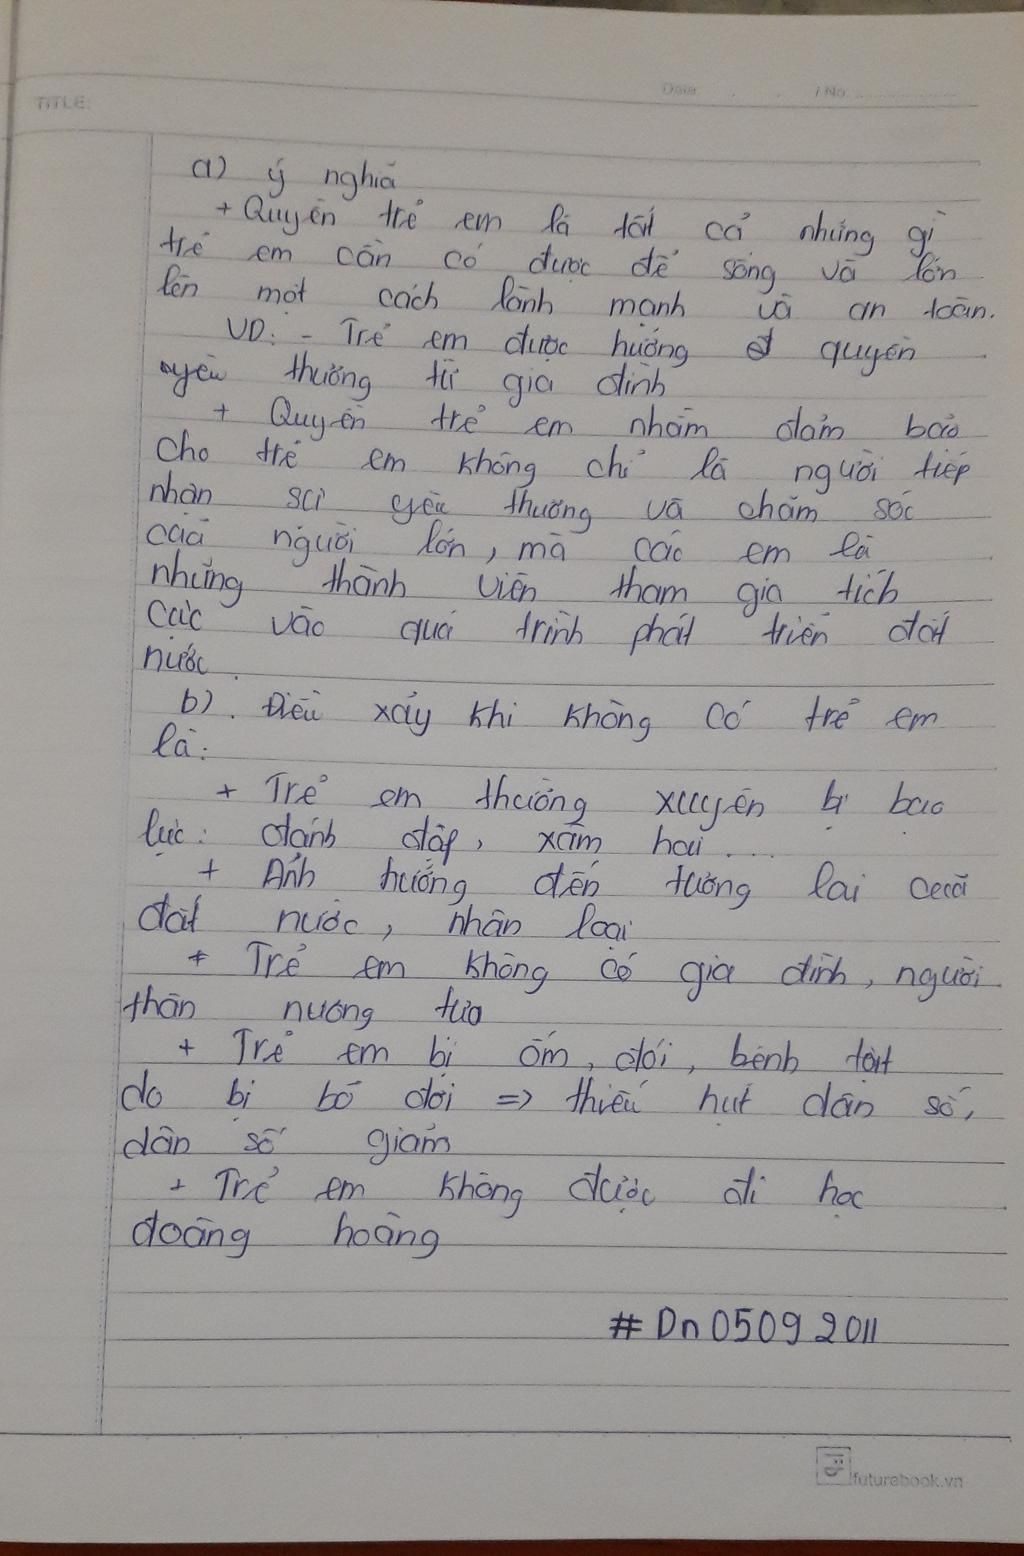 TITLE:
Date . . / No.
a) ý nghĩa
+ Quyền trẻ em là tất cả những gì
trẻ em cần có được để sống và lớn
lên một cách lành mạnh và an toàn.
VD: - Trẻ em được hưởng quyền
yêu thương từ gia đình
+ Quyền trẻ em nhằm đảm bảo
cho trẻ em không chỉ là người tiếp
nhận sự yêu thương và chăm sóc
của người lớn, mà các em là
những thành viên tham gia tích
cực vào quá trình phát triển đất
nước.
b). Điều xảy khi không có trẻ em
là:
+ Trẻ em thường xuyên bị bạo
lực: đánh đập, xâm hại ....
+ Ảnh hưởng đến tương lai của
đất nước, nhân loại
+ Trẻ em không có gia đình, người
thân nương tựa
+ Trẻ em bị ốm, đói, bệnh tật
do bị bỏ đói => thiếu hụt dân số,
dân số giảm
+ Trẻ em không được đi học
đoàng hoàng
# Dn 0509 2011
futurebook.vn